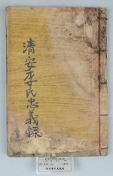 清安李氏忠義錄